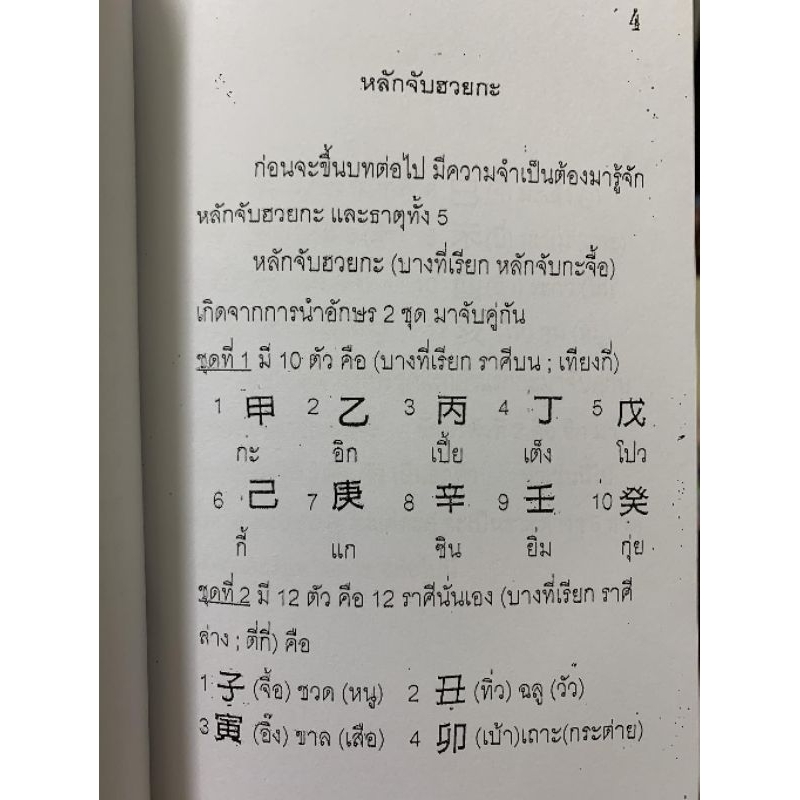 4
หลักจับฮวยกะ
ก่อนจะขึ้นบทต่อไป มีความจำเป็นต้องมารู้จัก
หลักจับฮวยกะ และธาตุทั้ง 5
หลักจับฮวยกะ (บางที่เรียก หลักจับกะจื้อ)
เกิดจากการนำอักษร 2 ชุด มาจับคู่กัน
ชุดที่ 1 มี 10 ตัว คือ (บางที่เรียก ราศีบน ; เทียงกี่)
1 甲 2 乙 3 丙 4 丁 5 戊
กะ อิก เปี้ย เต็ง โปว
6 己 7 庚 8 辛 9 壬 10 癸
กี้ แก ซิน ยิ่ม กุ่ย
ชุดที่ 2 มี 12 ตัว คือ 12 ราศีนั่นเอง (บางที่เรียก ราศี
ล่าง ; ตี่กี่) คือ
1 子 (จื้อ) ชวด (หนู) 2 丑 (ทิ่ว) ฉลู (วัว)
3 寅 (อิ๊ง) ขาล (เสือ) 4 卯 (เบ้า)เถาะ(กระต่าย)